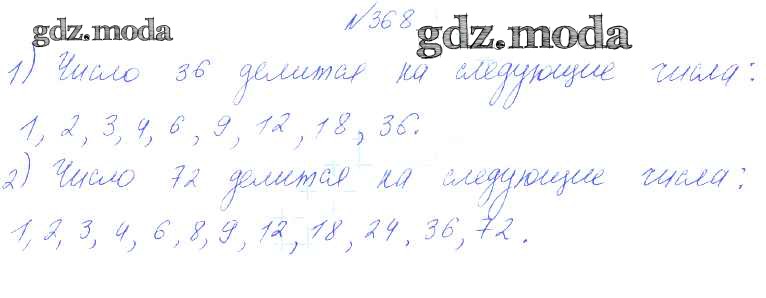 №368
gdz.moda
gdz.moda
1) Число 36 делится на следующие числа:
1, 2, 3, 4, 6, 9, 12, 18, 36.
2) Число 72 делится на следующие числа:
1, 2, 3, 4, 6, 8, 9, 12, 18, 24, 36, 72.